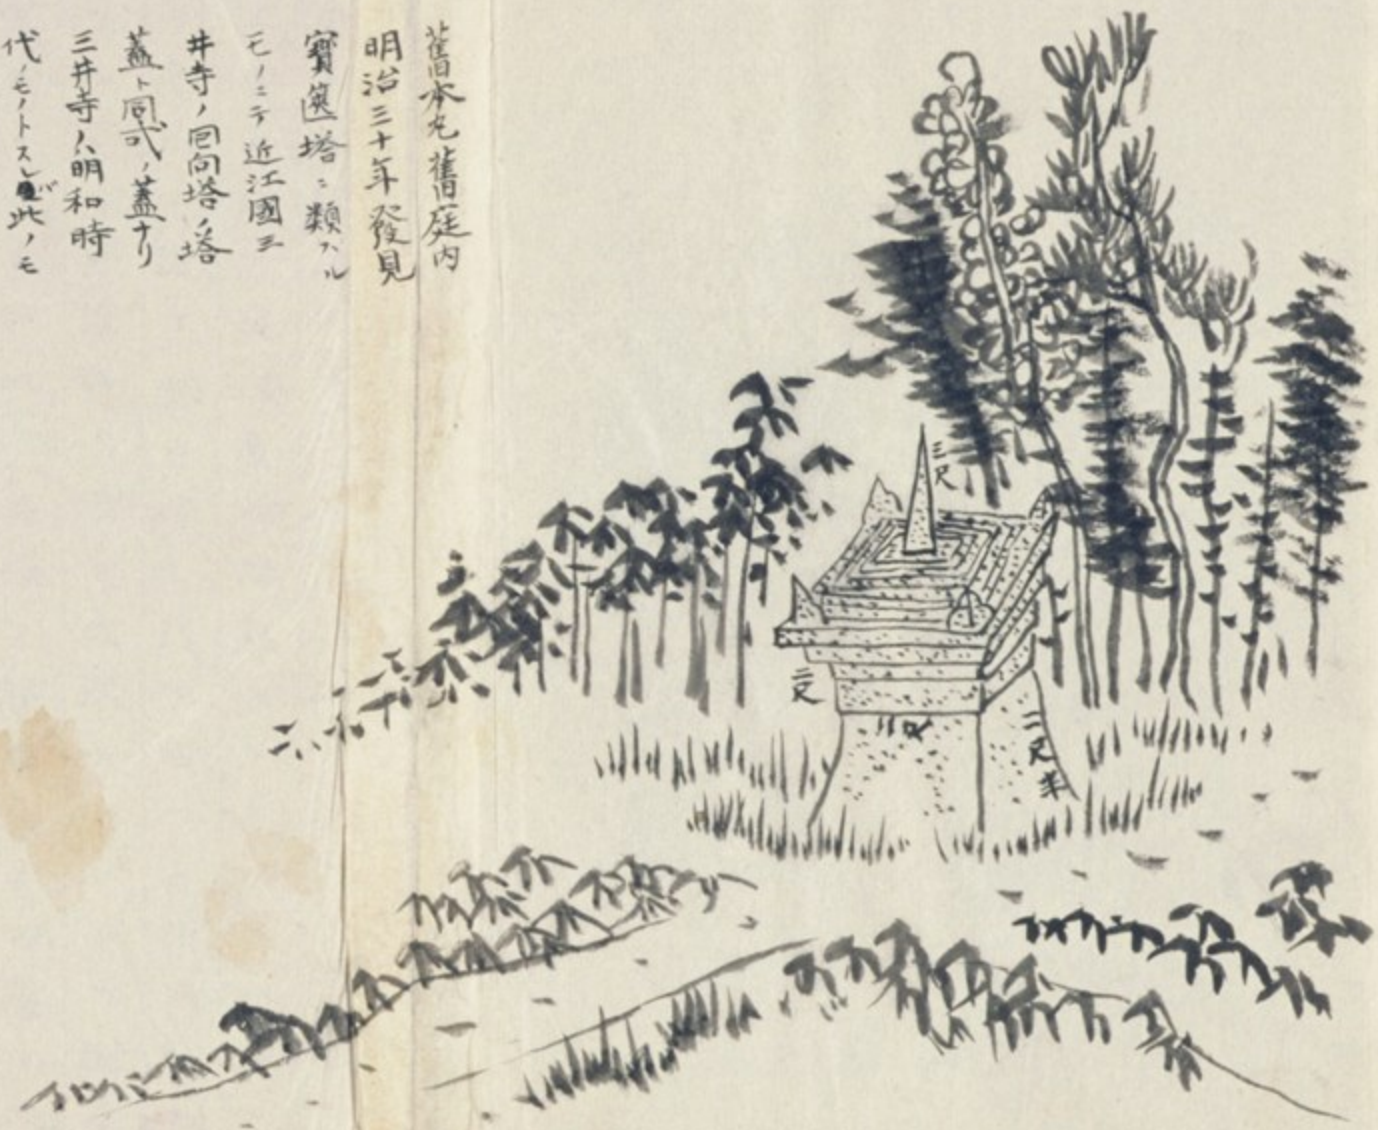 舊本丸舊庭内
明治三十年發見
寳篋塔ニ類スル
モノニテ近江國三
井寺ノ回向塔ノ塔
蓋ト同式ノ蓋ナリ
三井寺ハ明和時
代ノモノトスレバ此ノモ
三尺
二尺
二尺半